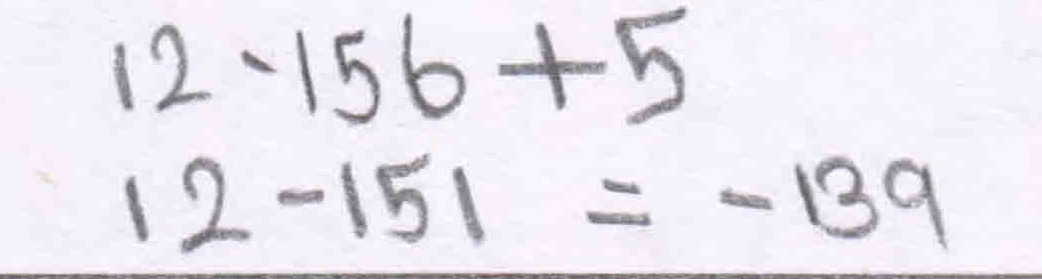 12-156+5
12-151 = -139